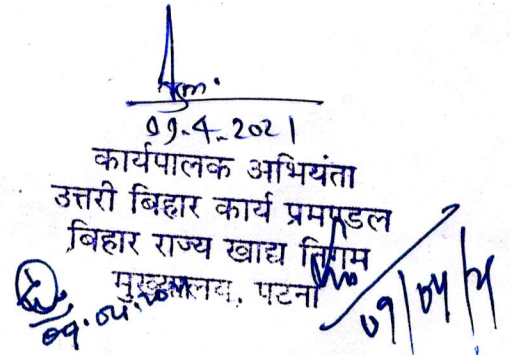 09.4.2021
कार्यपालक अभियंता
उत्तरी बिहार कार्य प्रमण्डल
बिहार राज्य खाद्य निगम
मुख्यालय, पटना
09.04.2021
09/04/21